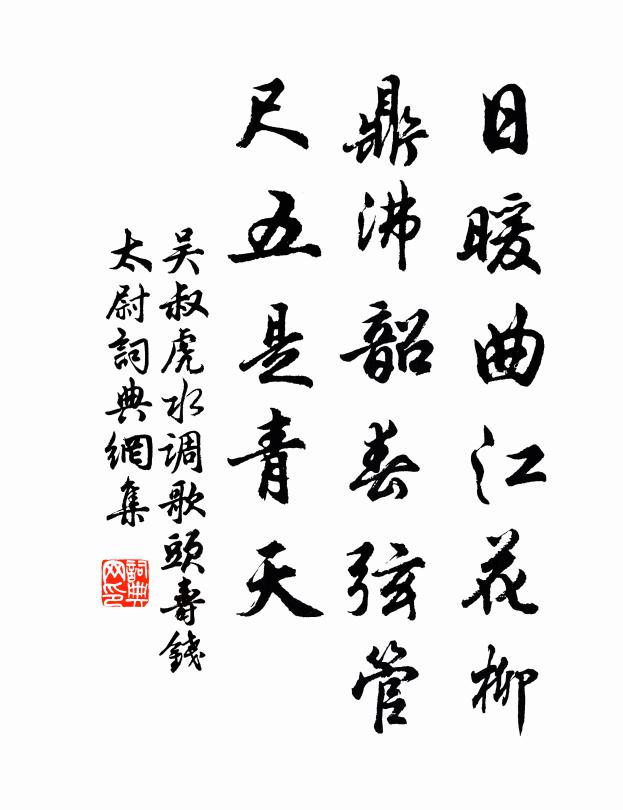 日暖曲江花柳
鼎沸韶春弦管
尺五是青天
吴叔虎水调歌頭壽錢
太尉詞典網集
詞典
网印